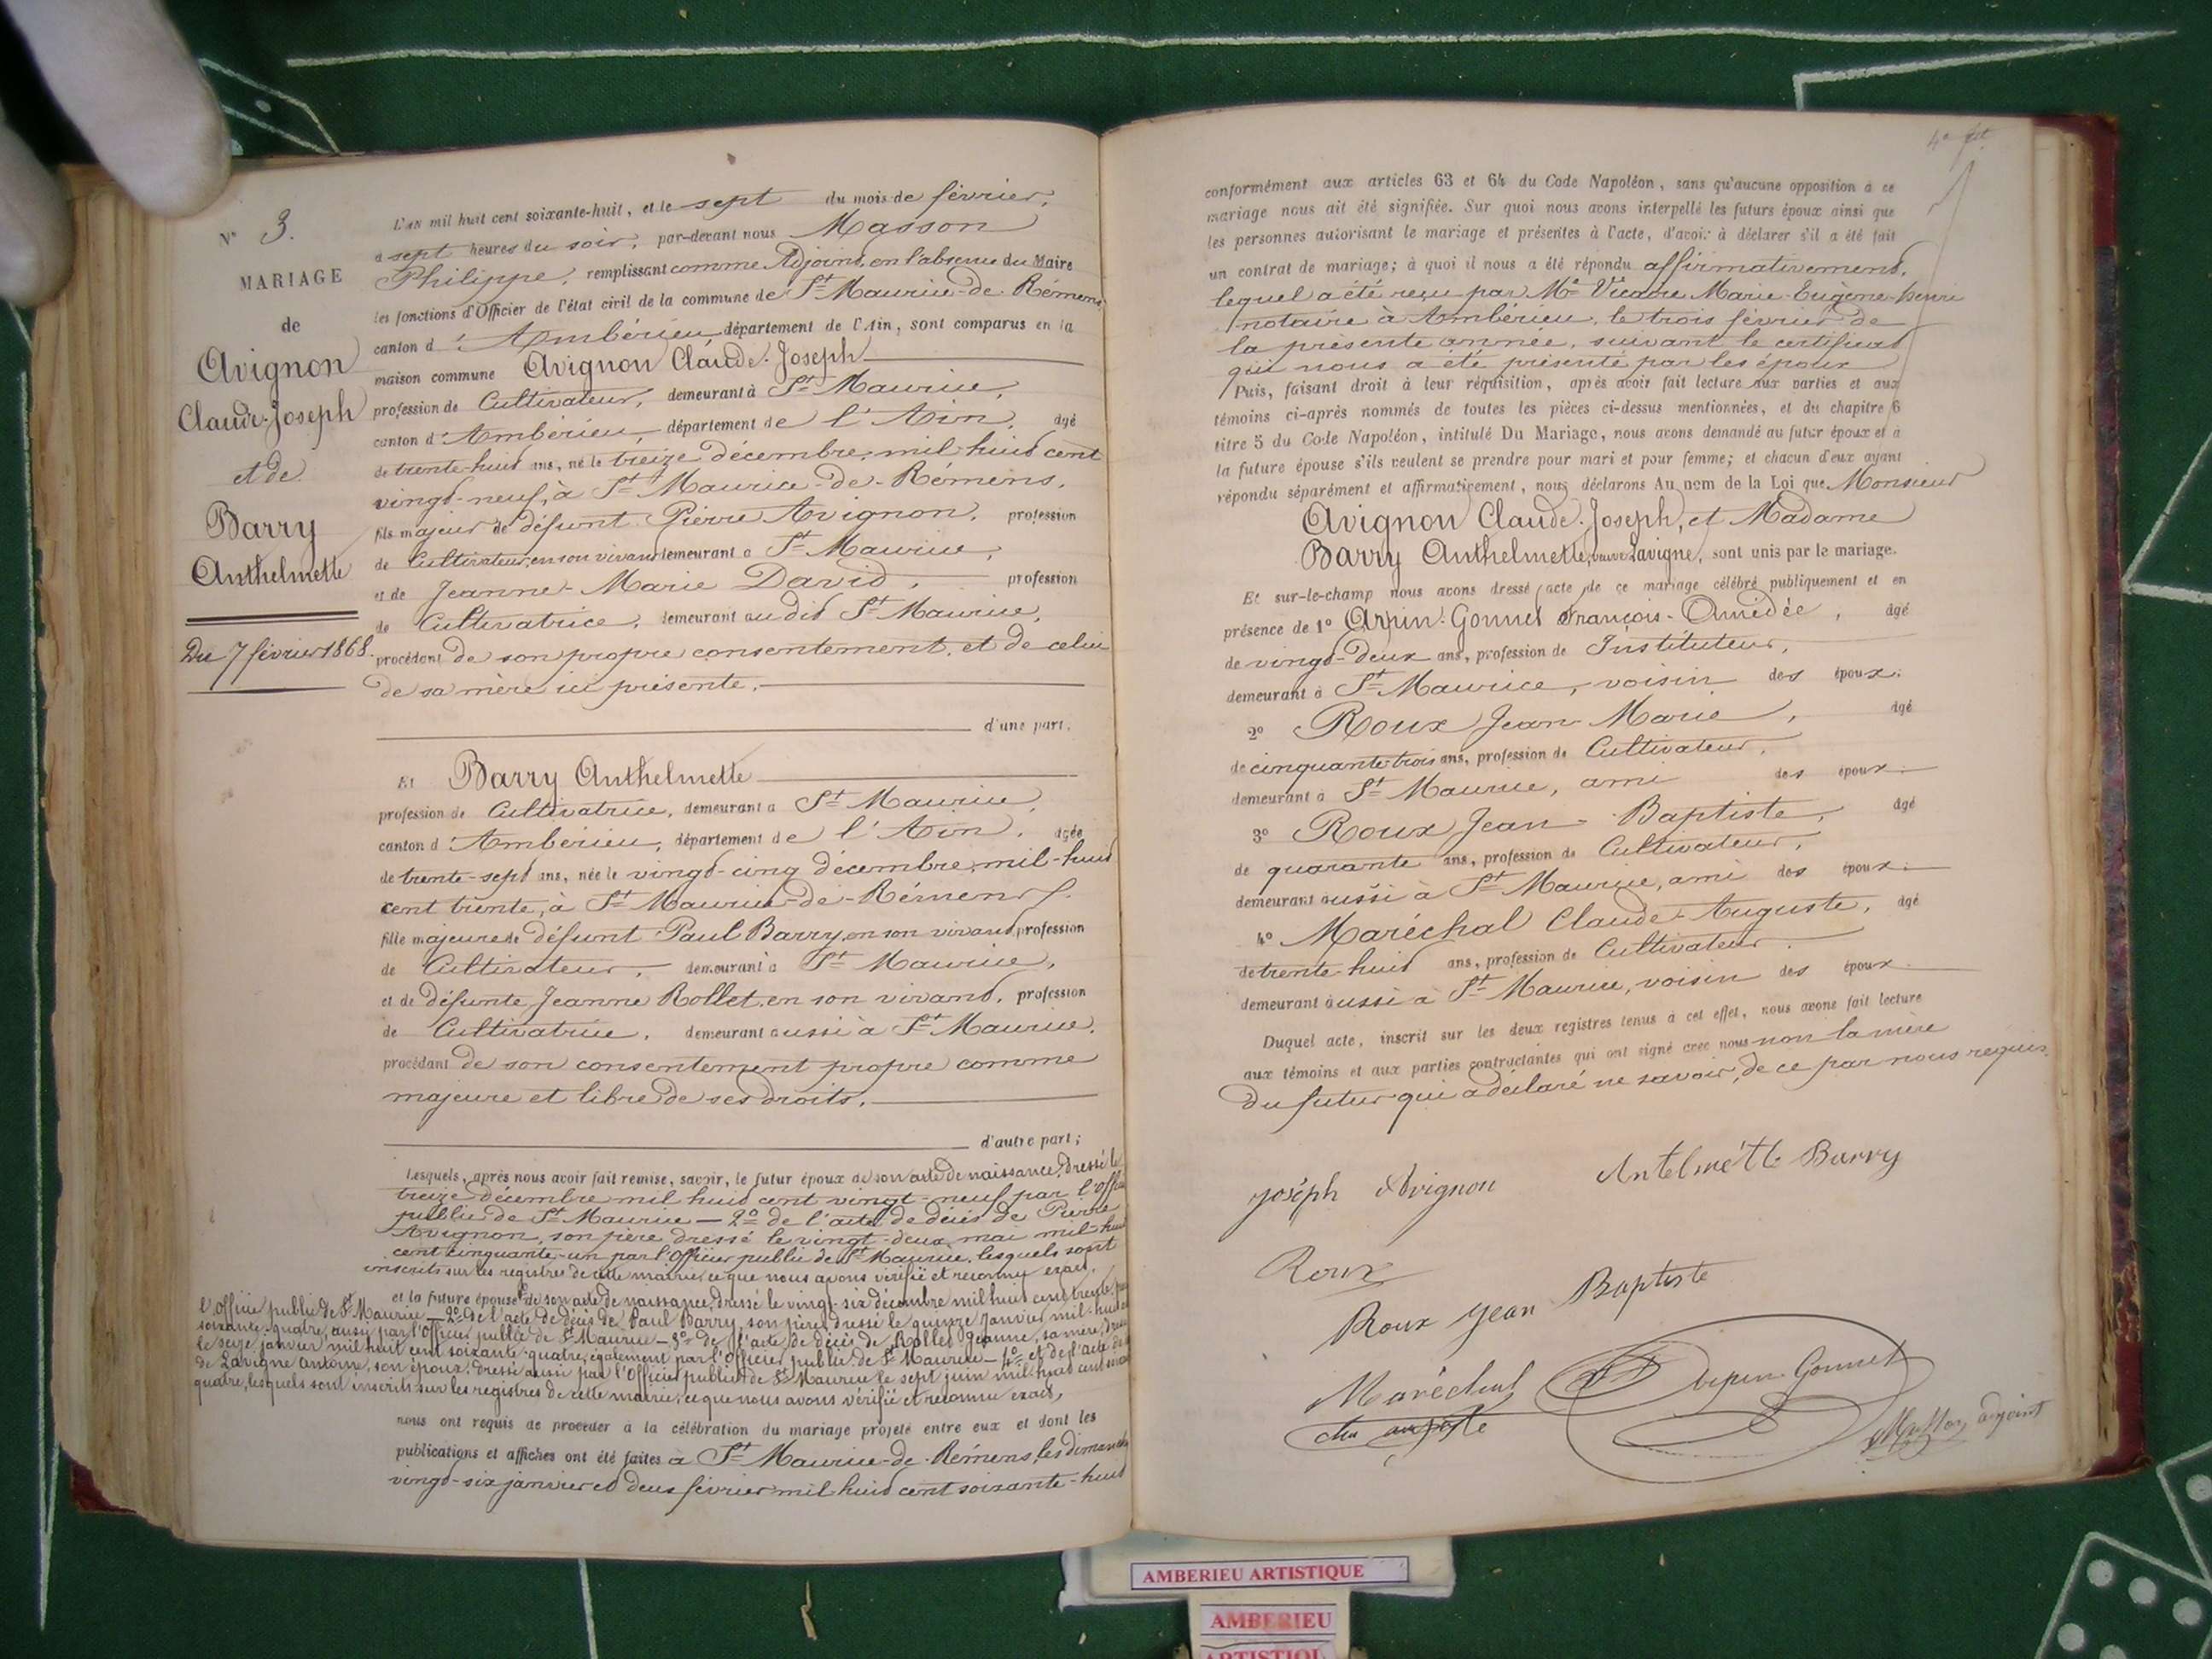 N° 3.
MARIAGE
de
Avignon
Claude-Joseph
et de
Barry
Anthelmette
Du 7 février 1868.
L'an mil huit cent soixante-huit, et le sept du mois de février,
à sept heures du soir, par-devant nous Masson
Philippe, remplissant comme Adjoint, en l'absence du Maire
les fonctions d'Officier de l'état civil de la commune de St Maurice-de-Rémens
canton d'Ambérieu, département de l'Ain, sont comparus en la
maison commune Avignon Claude-Joseph
profession de Cultivateur, demeurant à St Maurice,
canton d'Ambérieu, département de l'Ain, âgé
de trente-huit ans, né le treize décembre mil-huit cent
vingt-neuf, à St Maurice-de-Rémens,
fils majeur de défunt Pierre Avignon, profession
de Cultivateur, en son vivant demeurant à St Maurice,
et de Jeanne-Marie David, profession
de Cultivatrice, demeurant au dit St Maurice,
procédant de son propre consentement, et de celui
de sa mère ici présente,
d'une part.
Et Barry Anthelmette
profession de Cultivatrice, demeurant à St Maurice,
canton d'Ambérieu, département de l'Ain, âgée
de trente-sept ans, née le vingt-cinq décembre mil-huit
cent trente, à St Maurice-de-Rémens,
fille majeure de défunt Paul Barry, en son vivant profession
de Cultivateur, demeurant à St Maurice,
et de défunte Jeanne Rollet, en son vivant, profession
de Cultivatrice, demeurant aussi à St Maurice,
procédant de son consentement propre comme
majeure et libre de ses droits,
d'autre part;
Lesquels, après nous avoir fait remise, savoir, le futur époux de son acte de naissance, dressé le
treize décembre mil huit cent vingt-neuf par l'Offi
public de St Maurice — 2° de l'acte de décès de Pierre
Avignon, son père dressé le vingt-deux mai mil-hui
cent cinquante-un par l'Officier public de St Maurice, lesquels sont
inscrits sur les registres de cette mairie, ce que nous avons vérifié et reconnu exact,
et la future épouse de son acte de naissance, dressé le vingt-six décembre mil huit cent trente par
l'Officier public de St Maurice — 2° de l'acte de décès de Paul Barry, son père, dressé le quinze Janvier mil-huit
soixante-quatre, aussi par l'Officier public de St Maurice — 3° de l'acte de décès de Rollet Jeanne, sa mère,
le seize janvier mil huit cent soixante-quatre, également par l'Officier public de St Maurice — 4° et de l'acte de
de Lavigne Antoine, son époux, dressé aussi par l'Officier public de St Maurice le sept juin mil-huit cent
quatre, lesquels sont inscrits sur les registres de cette mairie, ce que nous avons vérifié et reconnu exact,
nous ont requis de procéder à la célébration du mariage projeté entre eux et dont les
publications et affiches ont été faites à St Maurice-de-Rémens, les dimanches
vingt-six janvier et deux février mil huit cent soixante-huit
conformément aux articles 63 et 64 du Code Napoléon, sans qu'aucune opposition à ce
mariage nous ait été signifiée. Sur quoi nous avons interpellé les futurs époux ainsi que
les personnes autorisant le mariage et présentes à l'acte, d'avoir à déclarer s'il a été fait
un contrat de mariage; à quoi il nous a été répondu affirmativement,
lequel a été reçu par Me Marie-Eugène-henri
notaire à Ambérieu, le trois février de
la présente année, suivant le certificat
qui nous a été présenté par les époux
Puis, faisant droit à leur réquisition, après avoir fait lecture aux parties et aux
témoins ci-après nommés de toutes les pièces ci-dessus mentionnées, et du chapitre 6
titre 5 du Code Napoléon, intitulé Du Mariage, nous avons demandé au futur époux et à
la future épouse s'ils veulent se prendre pour mari et pour femme; et chacun d'eux ayant
répondu séparément et affirmativement, nous déclarons Au nom de la Loi que Monsieur
Avignon Claude-Joseph, et Madame
Barry Anthelmette, veuve Lavigne, sont unis par le mariage.
Et sur-le-champ nous avons dressé acte de ce mariage célébré publiquement et en
présence de 1° Arpin-Gonnet François-Amédée, âgé
de vingt-deux ans, profession de Instituteur,
demeurant à St Maurice, voisin des époux.
2° Roux Jean-Marie, âgé
de cinquante-trois ans, profession de Cultivateur,
demeurant à St Maurice, ami des époux
3° Roux Jean-Baptiste, âgé
de quarante ans, profession de Cultivateur,
demeurant aussi à St Maurice, ami des époux
4° Maréchal Claude-Auguste, âgé
de trente-huit ans, profession de Cultivateur
demeurant aussi à St Maurice, voisin des époux
Duquel acte, inscrit sur les deux registres tenus à cet effet, nous avons fait lecture
aux témoins et aux parties contractantes qui ont signé avec nous non la mère
du futur qui a déclaré ne savoir, de ce par nous requis.
joséph Avignon
Antelmétte Barry
Roux
Roux jean Baptiste
Maréchal
Arpin-Gonnet
Masson adjoint
AMBERIEU ARTISTIQUE
AMBERIEU